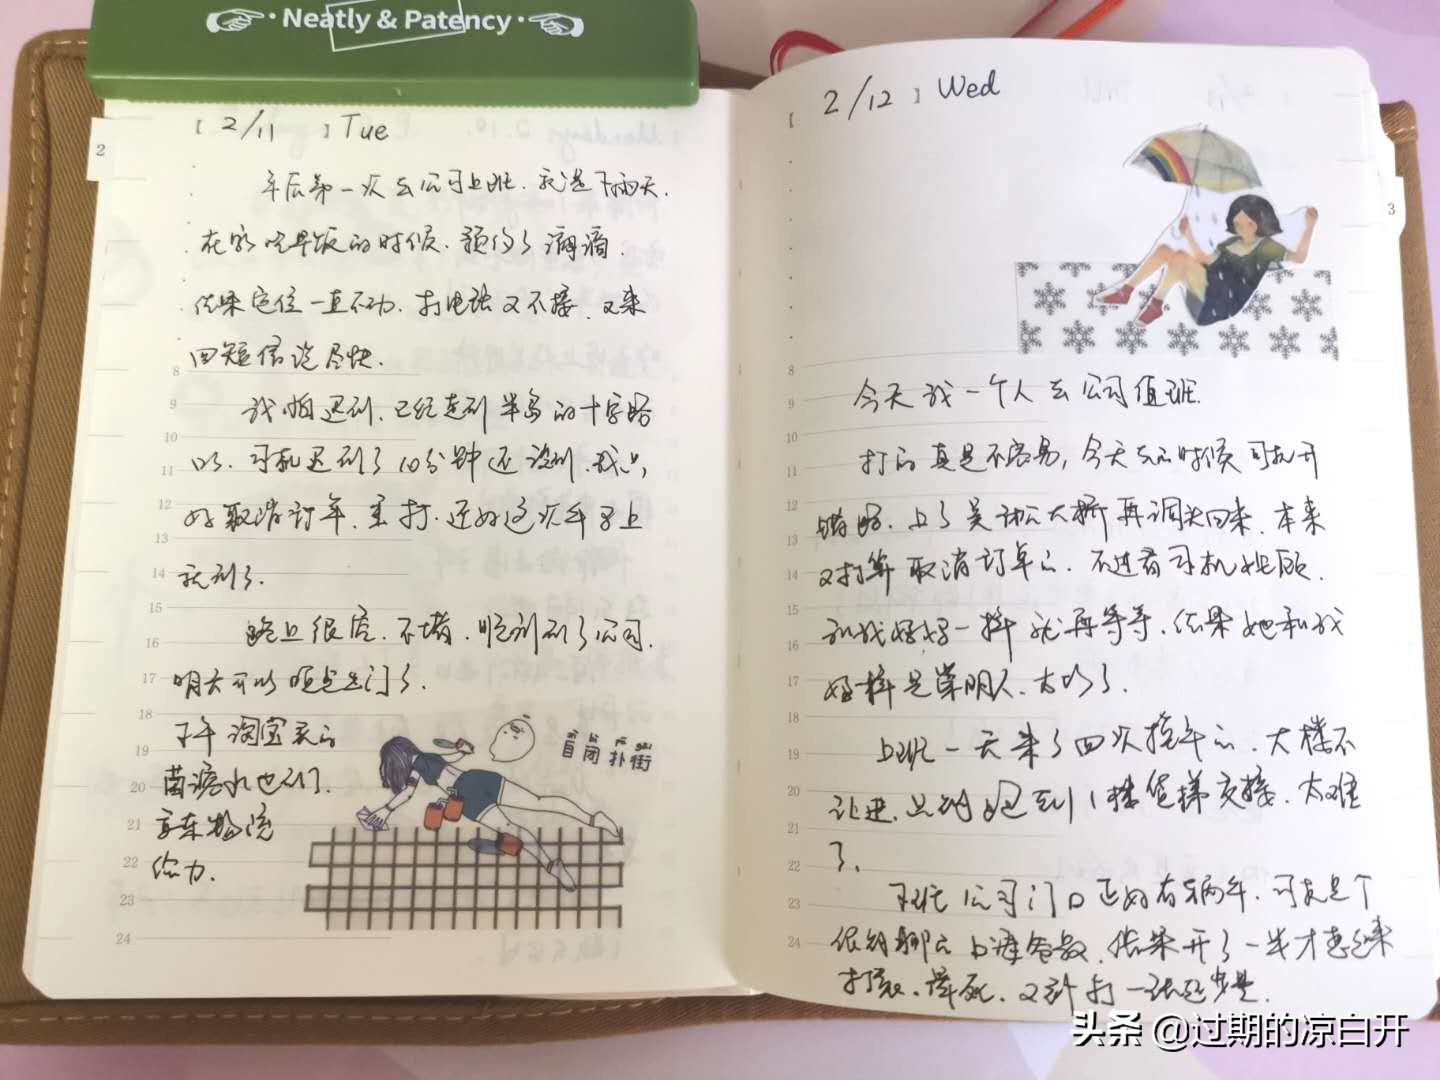 Neatly & Patency
【 2/11 】 Tue
2
年后第一次去公司上班，就是下雨天，
在家吃早饭的时候，预约了滴滴，
结果定位一直不动，打电话又不接，又来
回短信说尽快。
我怕迟到，已经走到半岛的十字路
口，司机迟到了10分钟还没到，我只
好取消订单，重打，还好这次车子马上
就到了。
路上很空，不堵，顺利到了公司，
明天可以晚点出门了。
下午淘宝买的
也到了。
京东物流
给力。
盲闭扑街
8
9
10
11
12
13
14
15
16
17
18
19
20
21
22
23
24
【 2/12 】 Wed
3
今天我一个人去公司值班。
打的真是不容易，今天去的时候司机开
错路，上了吴淞大桥再调头回来，本来
又打算取消订单的，不过看司机姓顾，
和我妈妈一样就再等等，结果她和我
妈一样是崇明人，太巧了。
上班一天来了四次接车的，大楼不
让进，只能跑到1楼货梯交接，太难
了。
下班公司门口正好有辆车，司机是个
很能聊的上海爷叔，结果开了一半才想起来
打表，
8
9
10
11
12
13
14
15
16
17
18
19
20
21
22
23
24
头条 @过期的凉白开